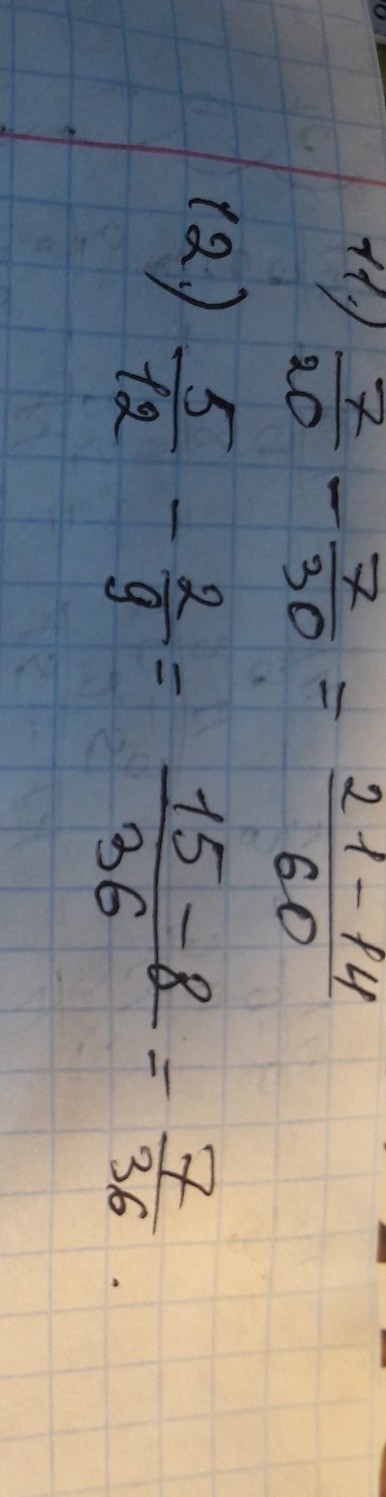 11.) 7/20 - 7/30 = 21-14/60
12.) 5/12 - 2/9 = 15-8/36 = 7/36.